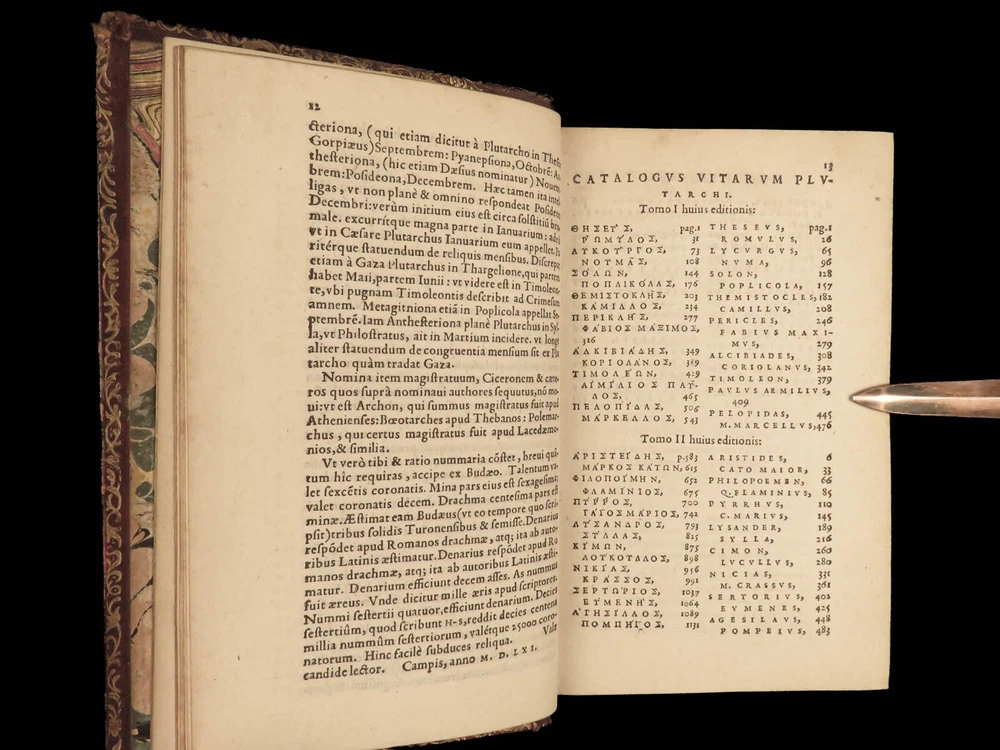 82
cteriona, (qui etiam dicitur à Plutarcho in Thes
Gorpiæus) Septembrem: Pyanepsiona, Octobrē: An
thesteriona, (hic etiam Dæsius nominatur) Nouem
brem: Posideona, Decembrem. Hæc tamen ita intel
ligas, vt non planè & omnino respondeat Posideo
Decembri: verùm initium eius est circa solstitiū bru
male. excurritque magna parte in Ianuarium: adeò
vt in Cæsare Plutarchus Ianuarium eum appellet. Pa
ritérque statuendum de reliquis mensibus. Discrepat
etiam à Gaza Plutarchus in Thargelione, qui partem
habet Maii, partem Iunii: vt videre est in Timoleon-
te, vbi pugnam Timoleontis describit ad Crimesum
amnem. Metagitniona etiā in Poplicola appellat Se-
ptembrē. Iam Anthesteriona planè Plutarchus in Syl-
la, vt Philostratus, ait in Martium incidere. vt longè
aliter statuendum de congruentia mensium sit ex Plu
tarcho quàm tradat Gaza.
Nomina item magistratuum, Ciceronem & cæte-
ros quos suprà nominaui authores sequutus, nō mu-
tui: vt est Archon, qui summus magistratus fuit apud
Athenienses: Bœotarches apud Thebanos: Polemar-
chus, qui certus magistratus fuit apud Lacedæmo-
nios, & similia.
Vt verò tibi & ratio nummaria cōstet, breui quis-
tum hîc requiras, accipe ex Budæo. Talentum va-
let sexcētis coronatis. Mina pars eius est sexagesima:
valet coronatis decem. Drachma centesima pars est
minæ. Æstimat eam Budæus (vt eo tempore quo scri-
psit) tribus solidis Turonensibus & semisse. Denarius
respōdet apud Romanos drachmæ, atq; ita ab auto-
ribus Latinis æstimatur. Denarius respōdet apud Ro
manos drachmæ, atq; ita ab autoribus Latinis æsti-
matur. Denarium efficiunt decem asses. As nummus
fuit æreus. Vnde dicitur mille æris apud scriptores.
Nummi sestertii quatuor, efficiunt denarium. Decies
sestertiûm, quod scribunt H-S, reddit decies centena
millia nummûm sestertiorum, valétque 25000 coro-
natorum. Hinc facilè subduces reliqua. Vale
candide lector. Campis, anno M. D. LXI.
13
CATALOGVS VITARVM PLV-
TARCHI.
Tomo I huius editionis:
ΘΗΣΕΥΣ, pag.1 THESEVS, pag.1
ῬΩΜΥΛΟΣ, 31 ROMVLVS, 26
ΛΥΚΟΥΡΓΟΣ, 73 LYCVRGVS, 65
ΝΟΥΜΑΣ, 108 NVMA, 96
ΣΟΛΩΝ, 144 SOLON, 128
ΠΟΠΛΙΚΟΛΑΣ, 176 POPLICOLA, 157
ΘΕΜΙΣΤΟΚΛΗΣ, 203 THEMISTOCLES, 182
ΚΑΜΙΛΛΟΣ, 234 CAMILLVS, 208
ΠΕΡΙΚΛΗΣ, 277 PERICLES, 246
ΦΑΒΙΟΣ ΜΑΞΙΜΟΣ, FABIVS MAXI-
316 MVS, 279
ἈΛΚΙΒΙΑΔΗΣ, 349 ALCIBIADES, 308
ΚΟΡΙΟΛΑΝΟΣ, 389 CORIOLANVS, 342
ΤΙΜΟΛΕΩΝ, 429 TIMOLEON, 379
ΑΙΜΙΛΙΟΣ ΠΑΥ- PAVLVS AEMILIVS,
ΛΟΣ, 465 409
ΠΕΛΟΠΙΔΑΣ, 506 PELOPIDAS, 445
ΜΑΡΚΕΛΛΟΣ, 543 M. MARCELLVS, 476
Tomo II huius editionis:
ἈΡΙΣΤΕΙΔΗΣ, p.583 ARISTIDES, 6
ΜΑΡΚΟΣ ΚΑΤΩΝ, 615 CATO MAIOR, 33
ΦΙΛΟΠΟΙΜΗΝ, 652 PHILOPOEMEN, 66
ΦΛΑΜΙΝΙΟΣ, 675 Q. FLAMINIVS, 85
ΠΥΡΡΟΣ, 700 PYRRHVS, 110
ΓΑΪΟΣ ΜΑΡΙΟΣ, 742 C. MARIVS, 145
ΛΥΣΑΝΔΡΟΣ, 793 LYSANDER, 189
ΣΥΛΛΑΣ, 825 SYLLA, 216
ΚΙΜΩΝ, 875 CIMON, 260
ΛΟΥΚΟΥΛΛΟΣ, 898 LVCVLLVS, 280
ΝΙΚΙΑΣ, 956 NICIAS, 331
ΚΡΑΣΣΟΣ, 991 M. CRASSVS, 361
ΣΕΡΤΩΡΙΟΣ, 1037 SERTORIVS, 402
ΕΥΜΕΝΗΣ, 1064 EVMENES, 425
ἈΓΗΣΙΛΑΟΣ, 1089 AGESILAVS, 448
ΠΟΜΠΗΙΟΣ, 1131 POMPEIVS, 483